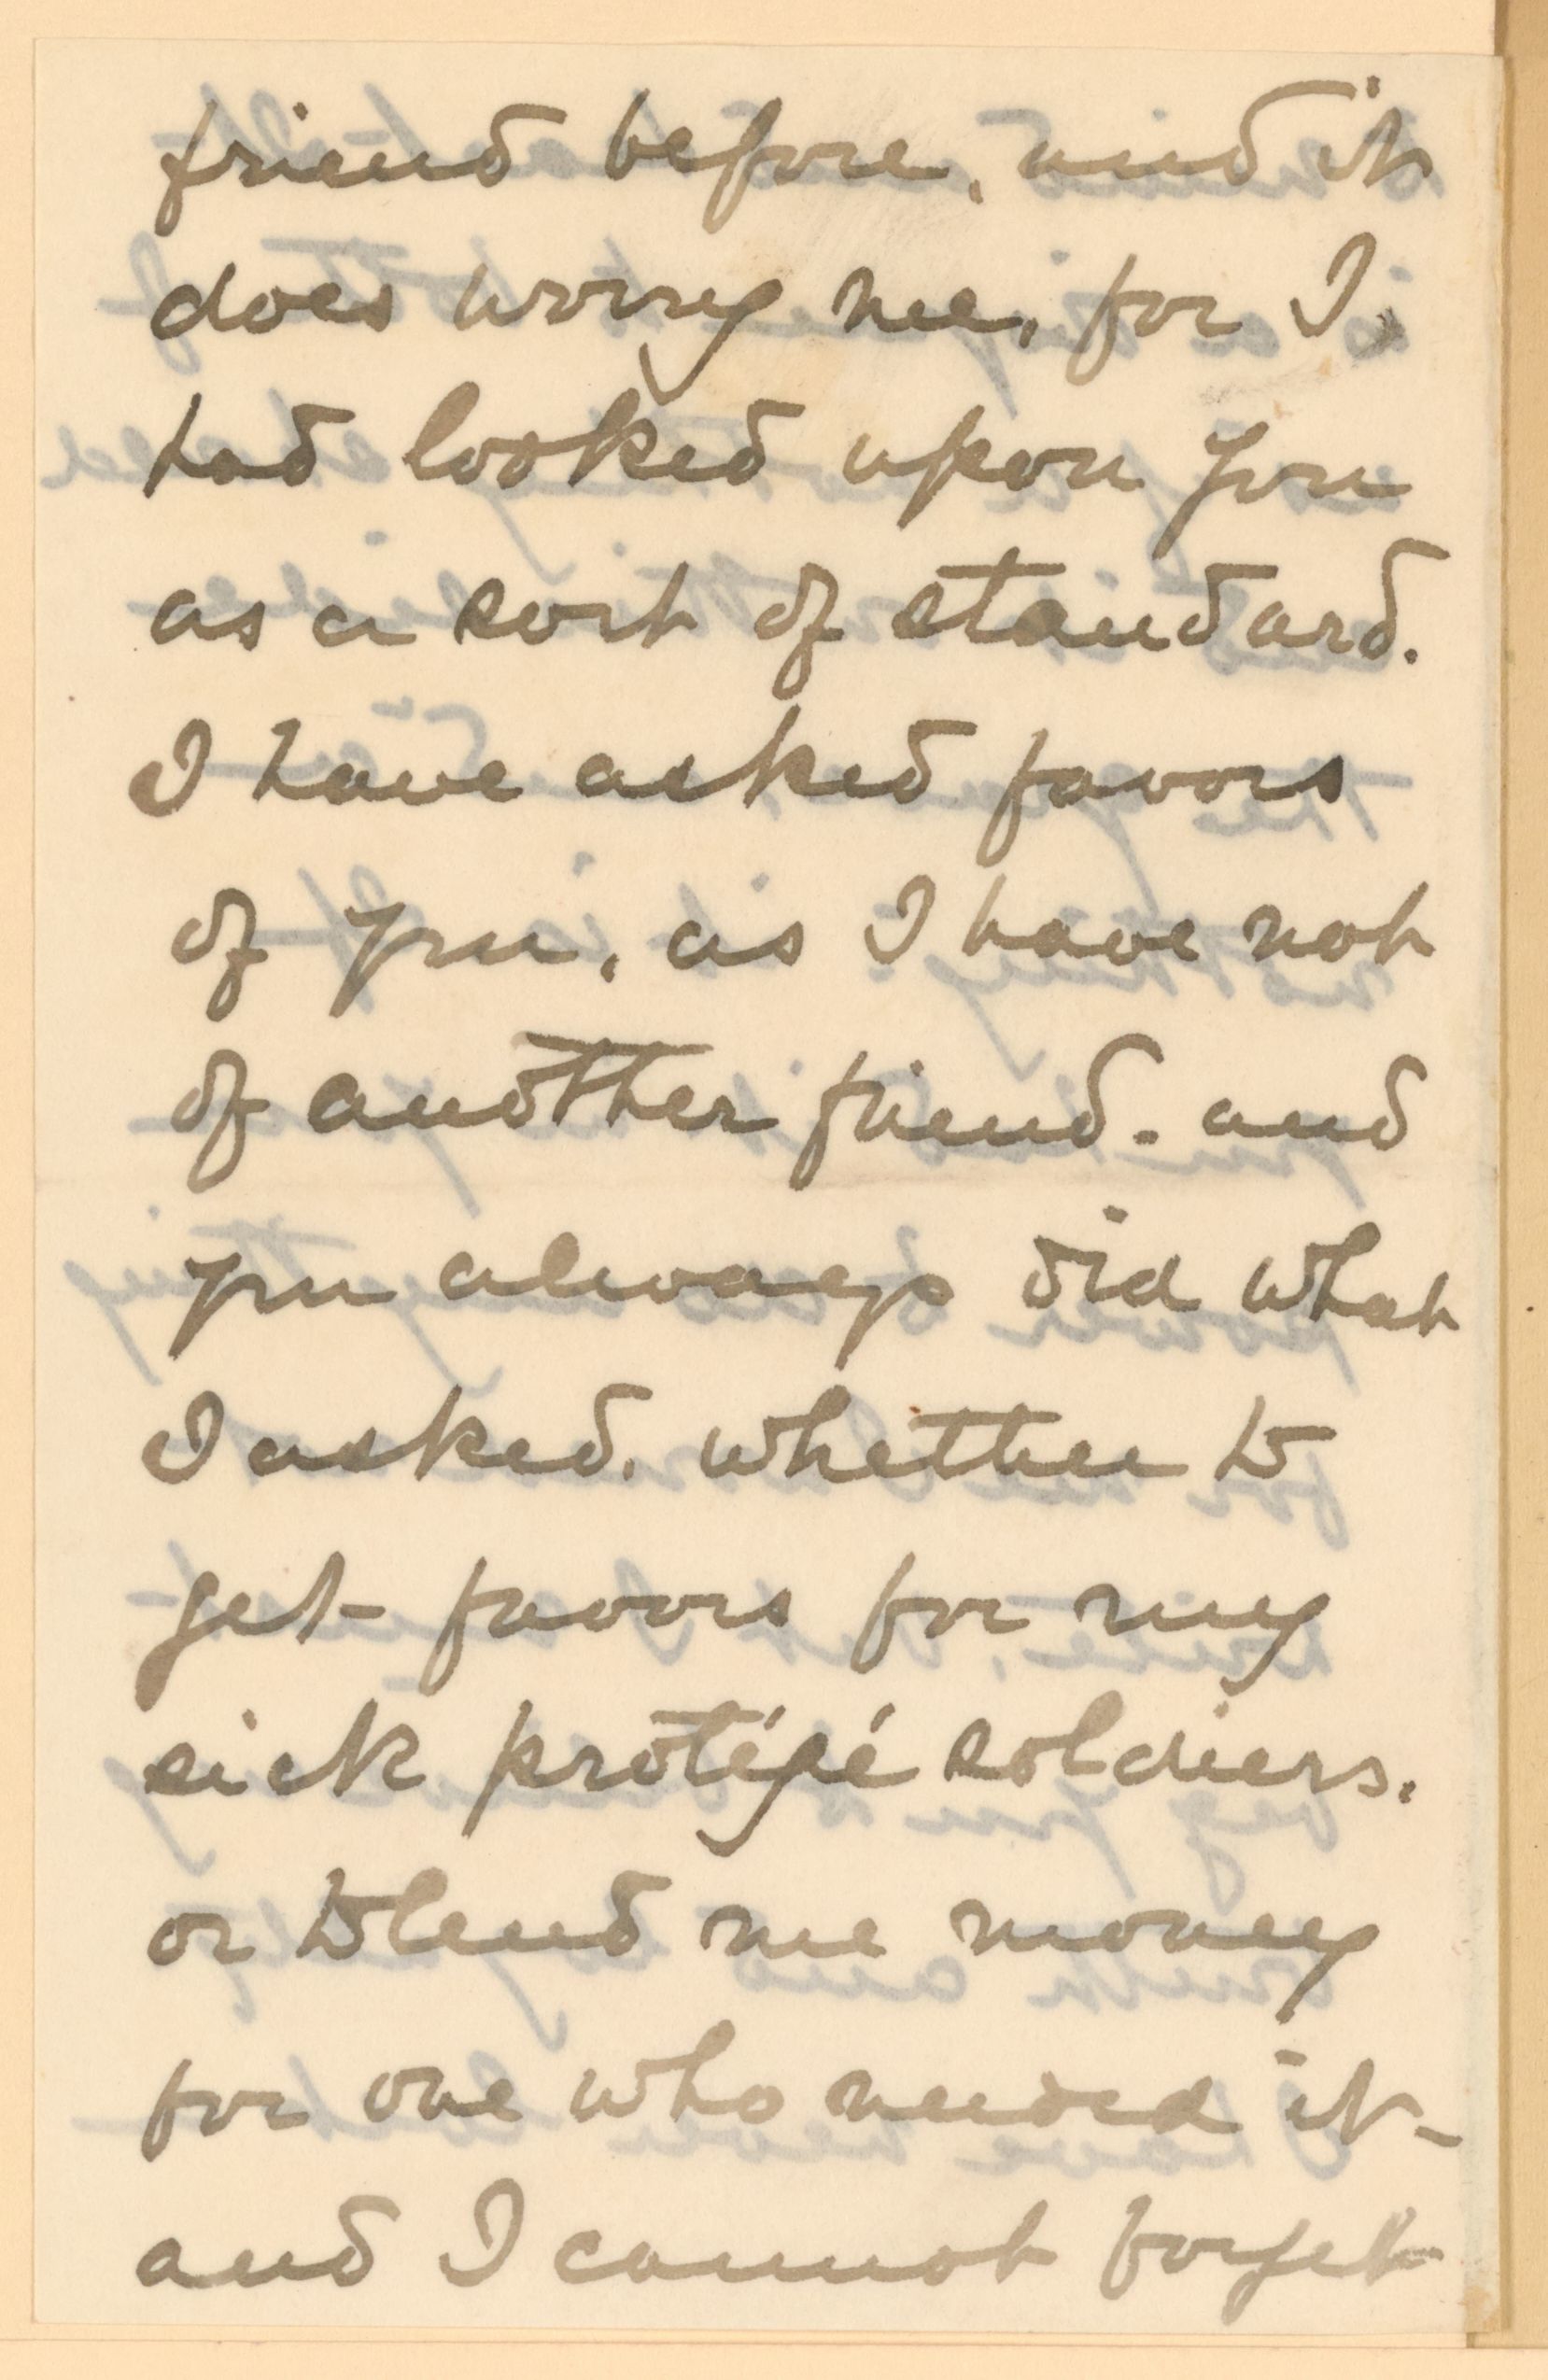 friend before, and it
does worry me, for I
had looked upon you
as a sort of standard.
I have asked favors
of you, as I have not
of another friend - and
you always did what
I asked, whether to
get favors for my
sick protégé soldiers,
or to lend me money
for one who needed it -
and I cannot forget